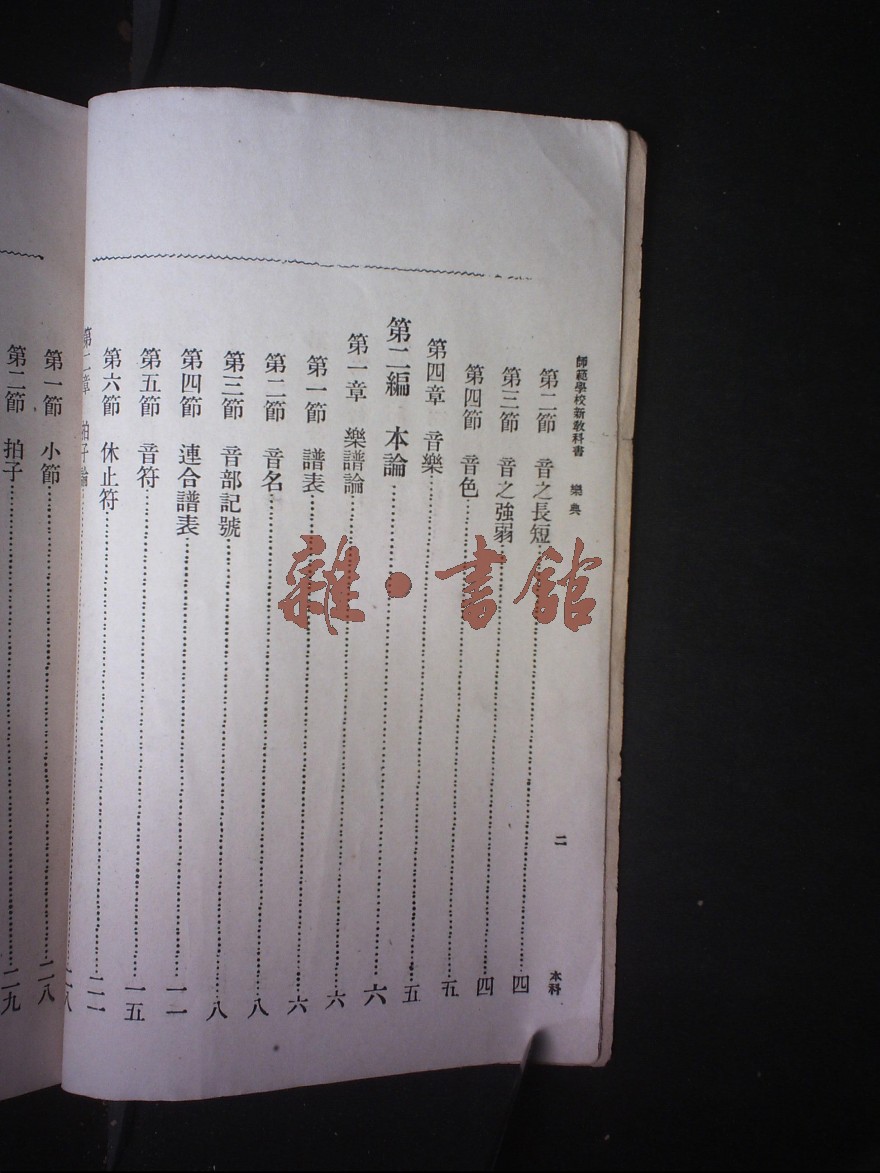 師範學校新教科書 樂典 二 本科
第二節 音之長短 四
第三節 音之強弱 四
第四節 音色 五
第四章 音樂 五
第二編 本論 六
第一章 樂譜論 六
第一節 譜表 六
第二節 音名 八
第三節 音部記號 八
第四節 連合譜表 一一
第五節 音符 一五
第六節 休止符 二一
第二章 拍子論 二八
第一節 小節 二八
第二節 拍子 二九
雜·書館